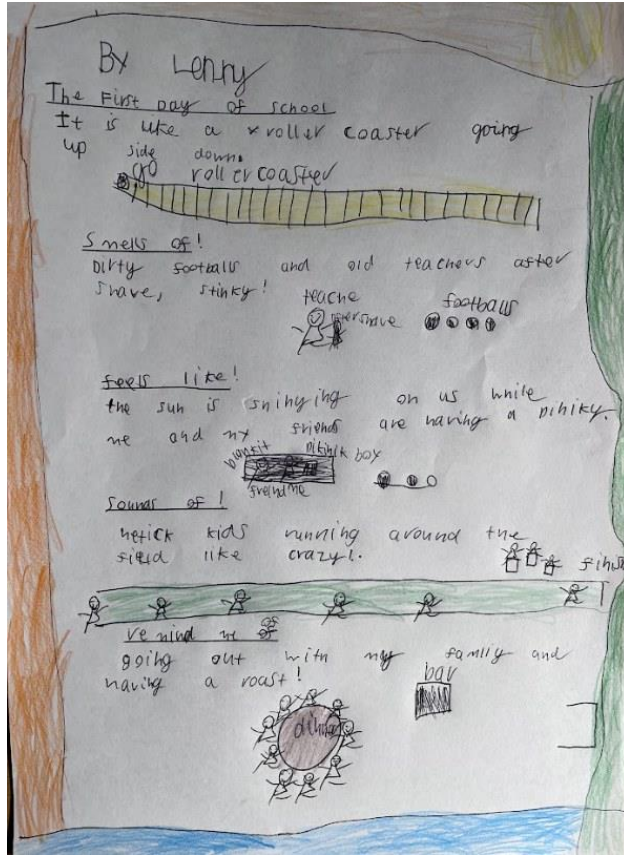 By Lenny
The First Day of school
It is like a roller coaster going
up side down.
go
rollercoaster
Smells of!
Dirty footballs and old teachers after
shave, stinky!
teache
aftershave
footballs
feels like!
the sun is shinying on us while
me and my friends are having a pikiky.
blankit
box
sounds of!
hetick kids running around the
field like crazy!.
finish
remind me of
of
going out with my family and
having a roast!
bar